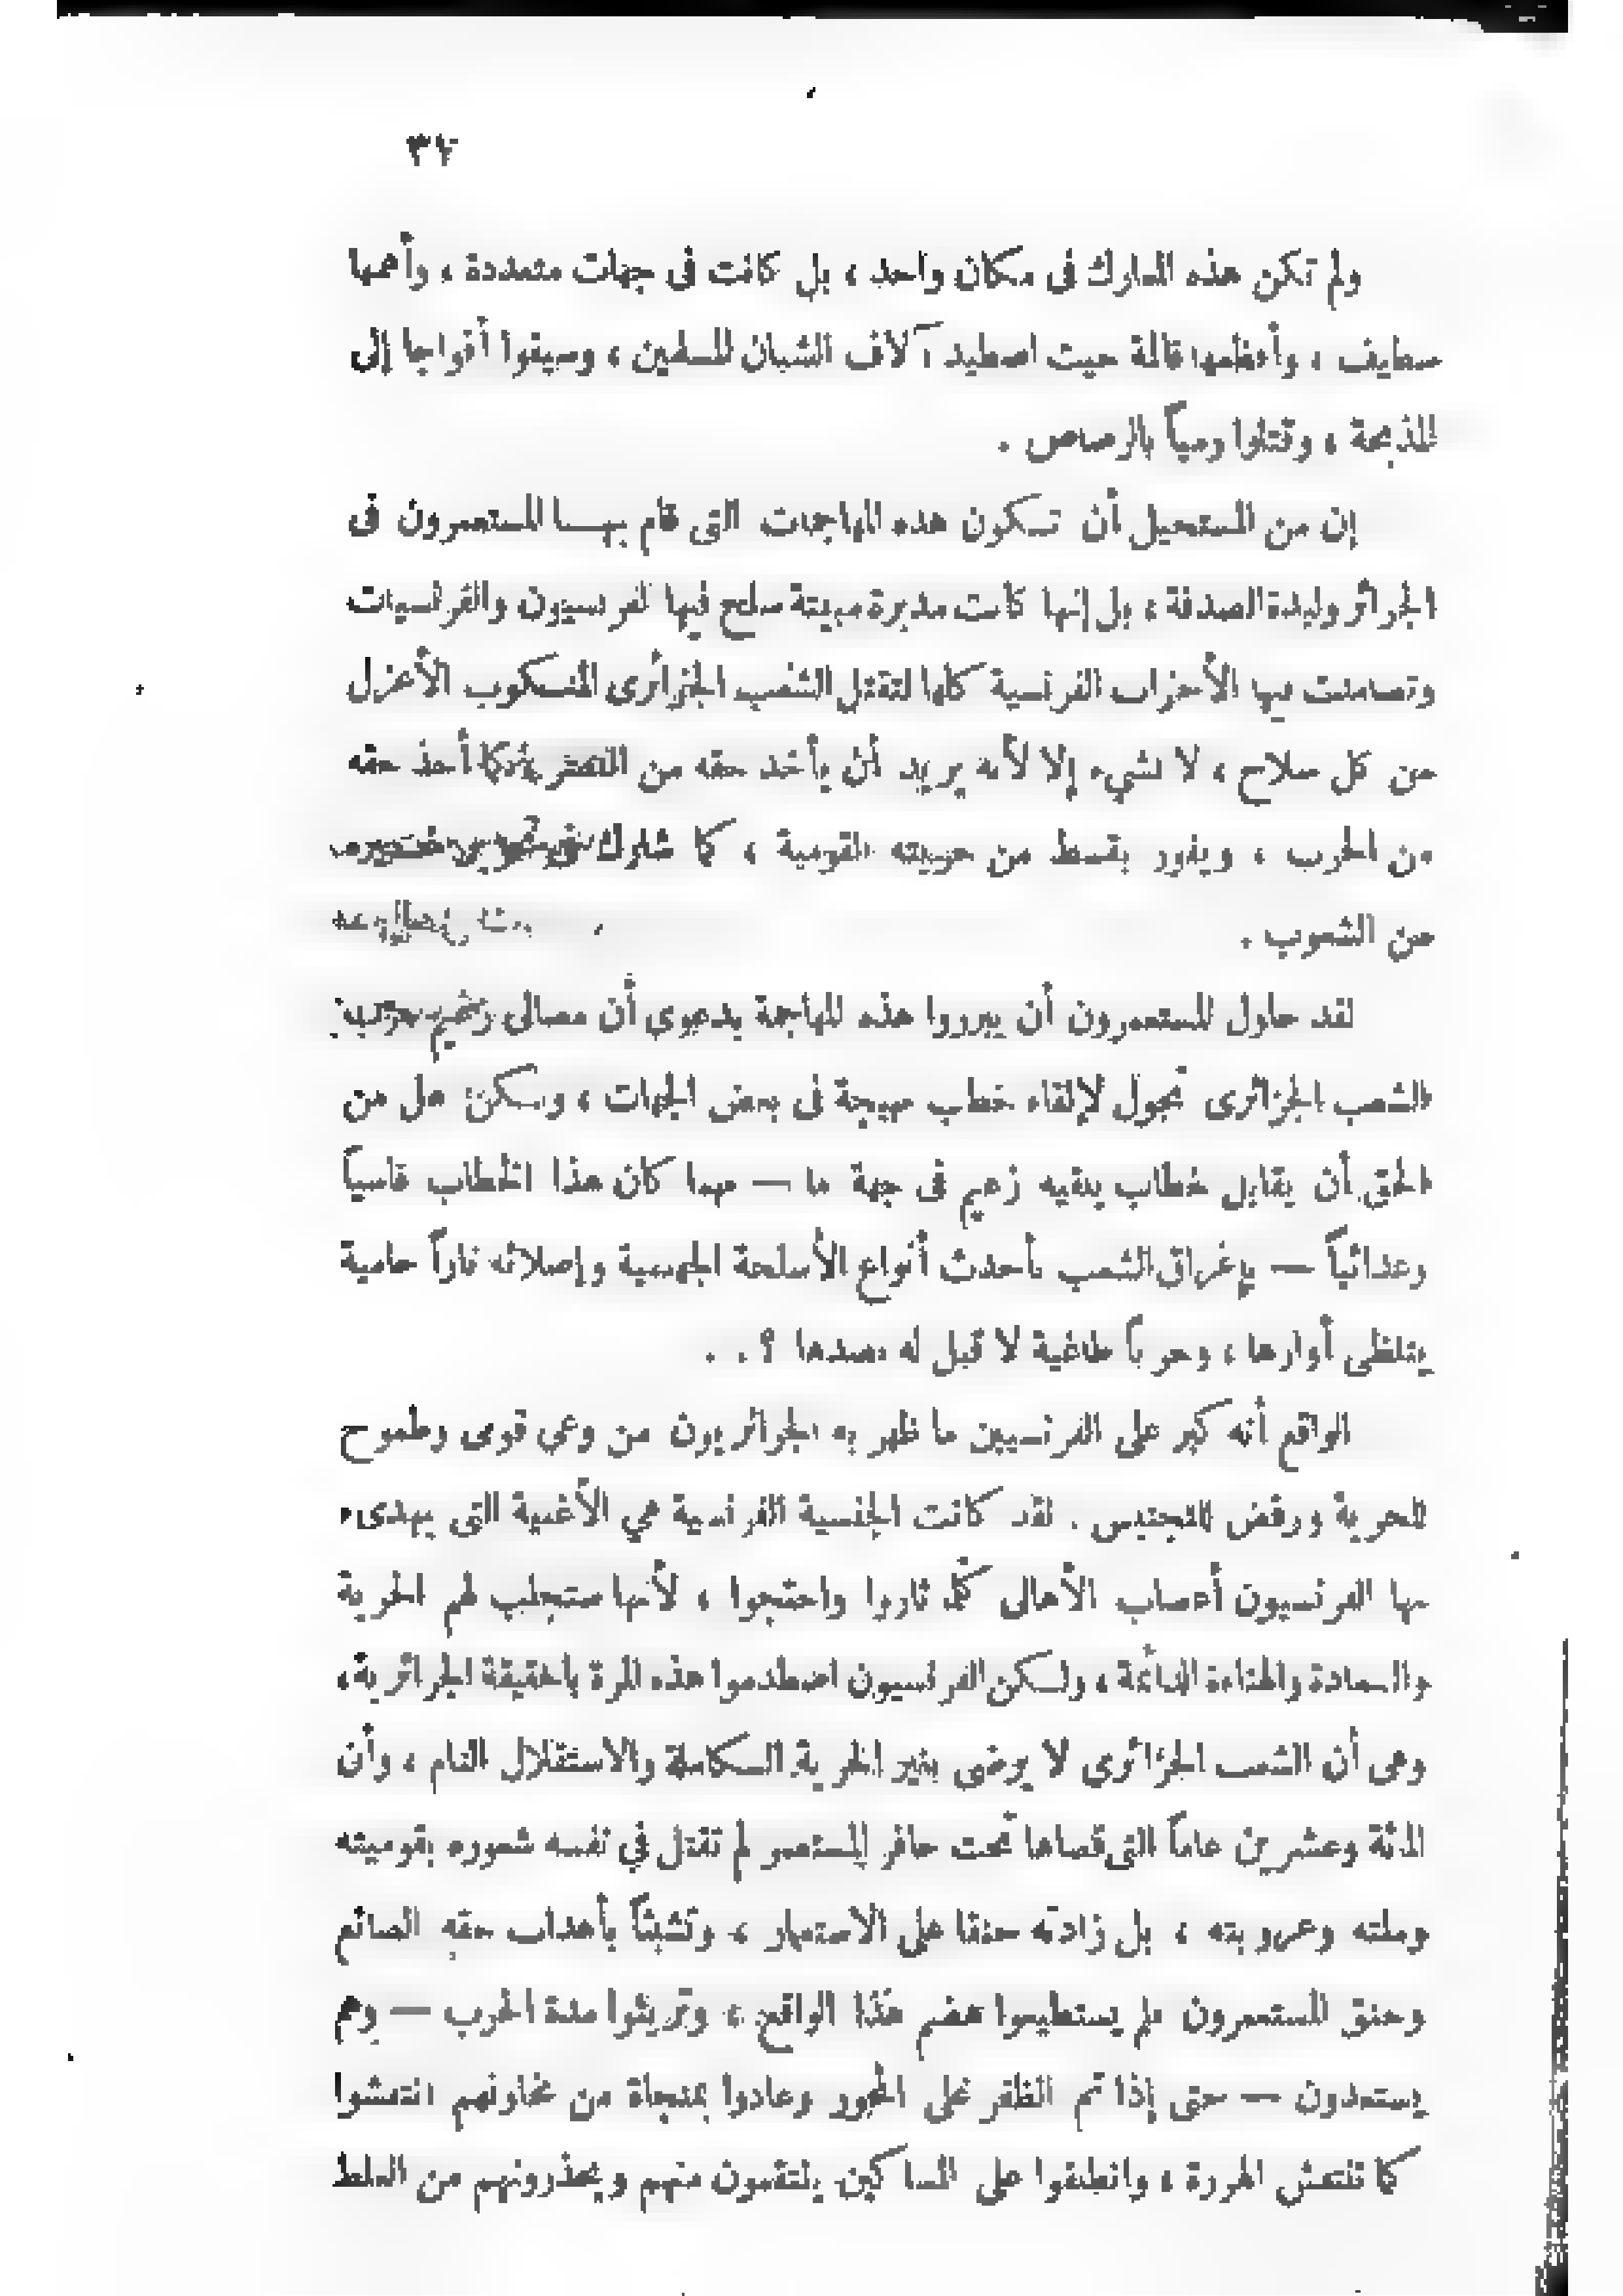 ٣٧
ولم تكن هذه المعارك فى مكان واحد ، بل كانت فى جهات متعددة ، وأهمها
سطيف ، وأفظعها قالمة حيث اصطيد آلاف الشبان المسلمين ، وسيقوا أفواجا إلى
المذبحة ، وقتلوا رمياً بالرصاص .
إن من المستحيل أن تكون هذه المهاجمات التى قام بهـا المستعمرون فى
الجزائر وليدة الصدفة ، بل إنها كانت مدبرة مبيتة سلح فيها الفرنسيون والفرنسيات
وتضامنت فيها الأحزاب الفرنسية كلها لتقتل الشعب الجزائرى المنكوب الأعزل
من كل سلاح ، لا لشيء إلا لأنه يريد أن يأخذ حقه من كما أخذ حقه
من الحرب ، ويفوز بقسط من حريته القومية ، كما شارك فى
من الشعوب .
لقد حاول المستعمرون أن يبرروا هذه المهاجمة بدعوى أن مصالى زعيم حزب
الشعب الجزائرى تجول لإلقاء خطب مهيجة فى بعض الجهات ، ولكن هل من
الحق أن يقابل خطاب يلقيه زعيم فى جهة ما — مهما كان هذا الخطاب قاسياً
وعدائياً — بإغراق الشعب بأحدث أنواع الأسلحة الجهنمية وإصلائه ناراً حامية
يتلظى أوارها ، وحرباً طاغية لا قبل له بصدها ؟ . .
الواقع أنه كبر على الفرنسيين ما ظهر به الجزائريون من وعي قوى وطموح
للحرية ورفض للتجنيس . لقد كانت الجنسية الفرنسية هي الأغنية التى يهدىء
بها الفرنسيون أعصاب الأهالى كلما ثاروا واحتجوا ، لأنها ستجلب لهم الحرية
والسعادة والهناءة الدائمة ، ولكن الفرنسيون اصطدموا هذه المرة بالحقيقة الجزائرية ،
وهى أن الشعب الجزائرى لا يرضى بغير الحرية الكاملة والاستقلال التام ، وأن
المائة وعشرين عاماً التى قضاها تحت حافر المستعمر لم تقتل في نفسه شعوره بقوميته
وملته وعروبته ، بل زادته حنقا على الاستعمار ، وتشبثاً بأهداب حقه الضائع
وحنق المستعمرون فلم يستطيعوا هضم هذا الواقع ، وتريثوا مدة الحرب — وهم
يستعدون — حتى إذا تم الظفر على المحور وعادوا بمنجاة من مخاوفهم انتعشوا
كما تنتعش الهررة ، وانطلقوا على المساكين ينتقمون منهم ويحذرونهم من الغلط